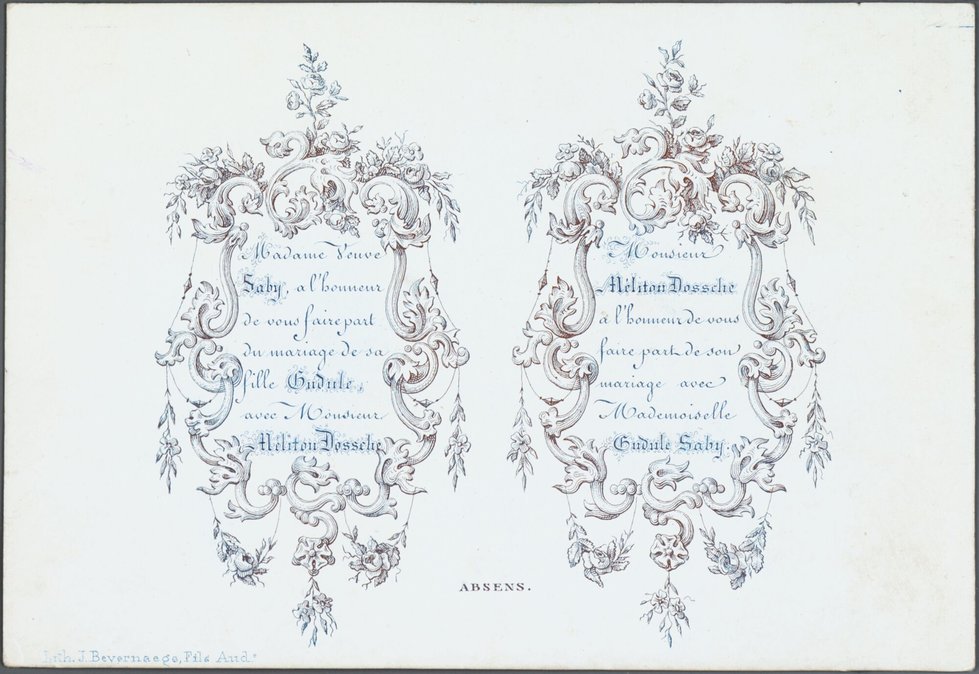 Madame Veuve
Saby, a l'honneur
de vous faire part
du mariage de sa
fille Gudule,
avec Monsieur
Méliton Dossche
Monsieur
Méliton Dossche
à l'honneur de vous
faire part de son
mariage avec
Mademoiselle
Gudule Saby.
ABSENS.
Lith. J. Bevernaege, Fils Aud.e